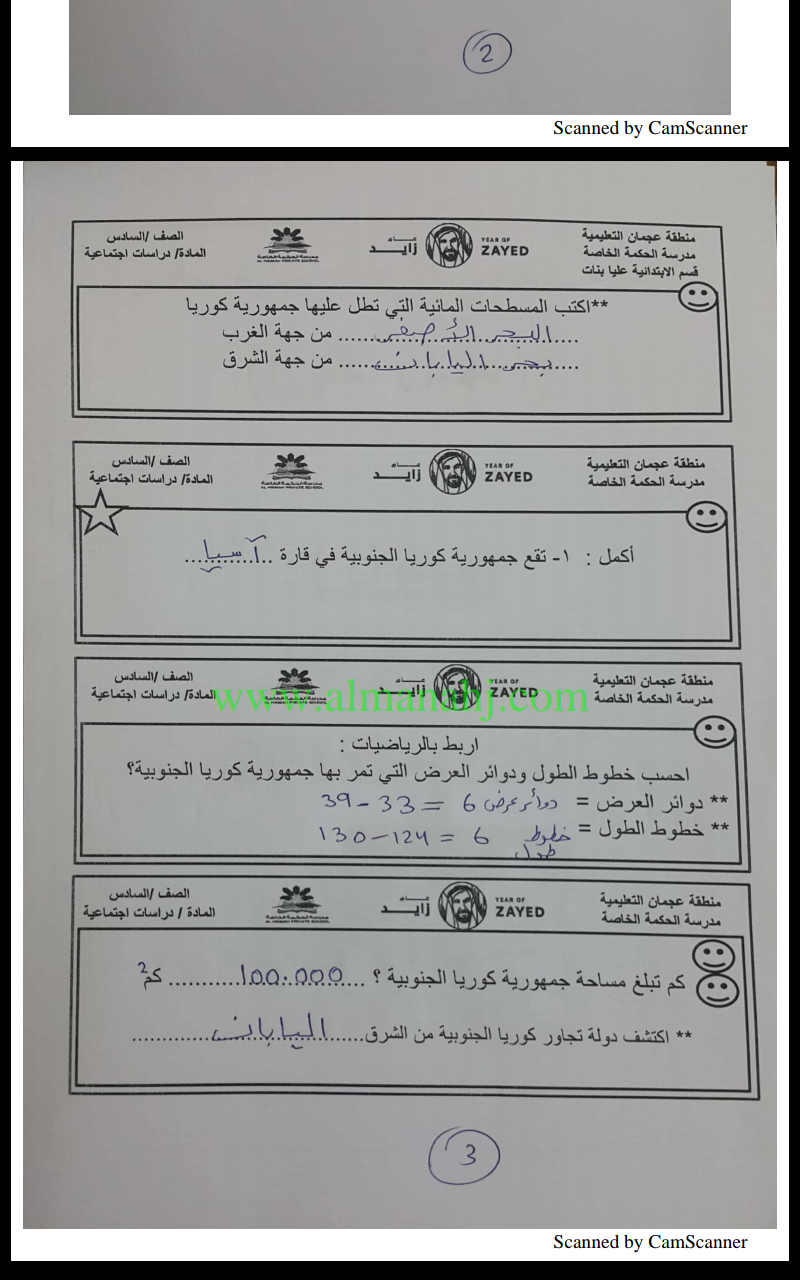 2
Scanned by CamScanner
منطقة عجمان التعليمية
مدرسة الحكمة الخاصة
قسم الابتدائية عليا بنات
YEAR OF ZAYED
عام زايد
الصف /السادس
المادة/ دراسات اجتماعية
**اكتب المسطحات المائية التي تطل عليها جمهورية كوريا
....البحر الأصفر...... من جهة الغرب
....بحر اليابان...... من جهة الشرق
منطقة عجمان التعليمية
مدرسة الحكمة الخاصة
YEAR OF ZAYED
عام زايد
الصف /السادس
المادة/ دراسات اجتماعية
أكمل : ١- تقع جمهورية كوريا الجنوبية في قارة ..آسيا..
منطقة عجمان التعليمية
مدرسة الحكمة الخاصة
YEAR OF ZAYED
عام زايد
الصف /السادس
المادة/ دراسات اجتماعية
www.almanahj.com
اربط بالرياضيات :
احسب خطوط الطول ودوائر العرض التي تمر بها جمهورية كوريا الجنوبية؟
** دوائر العرض = 39 - 33 = 6 دوائر عرض
** خطوط الطول = 130 - 124 = 6 خطوط طول
منطقة عجمان التعليمية
مدرسة الحكمة الخاصة
YEAR OF ZAYED
عام زايد
الصف /السادس
المادة / دراسات اجتماعية
كم تبلغ مساحة جمهورية كوريا الجنوبية ؟ ....100.000.... كم2
** اكتشف دولة تجاور كوريا الجنوبية من الشرق....اليابان....
3
Scanned by CamScanner